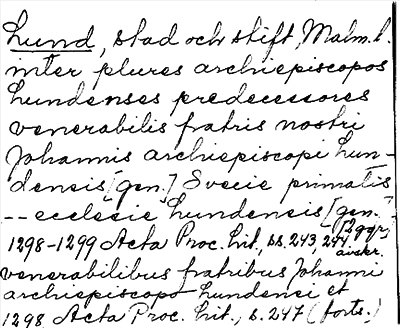 Lund, stad och stift, Malm. l.
inter plures archiepiscopos
Lundenses predecessores
venerabilis fratris nostri
Johannis archiepiscopi Lun-
densis [gen.] Svecie primatis
-- ecclesie Lundensis [gen.]
1298-1299 Acta Proc. Lit., ss. 243, 244
avskr.
venerabilibus fratribus Johanni
archiepiscopo Lundensi et
1298 Acta Proc. Lit., s. 247 (forts.)